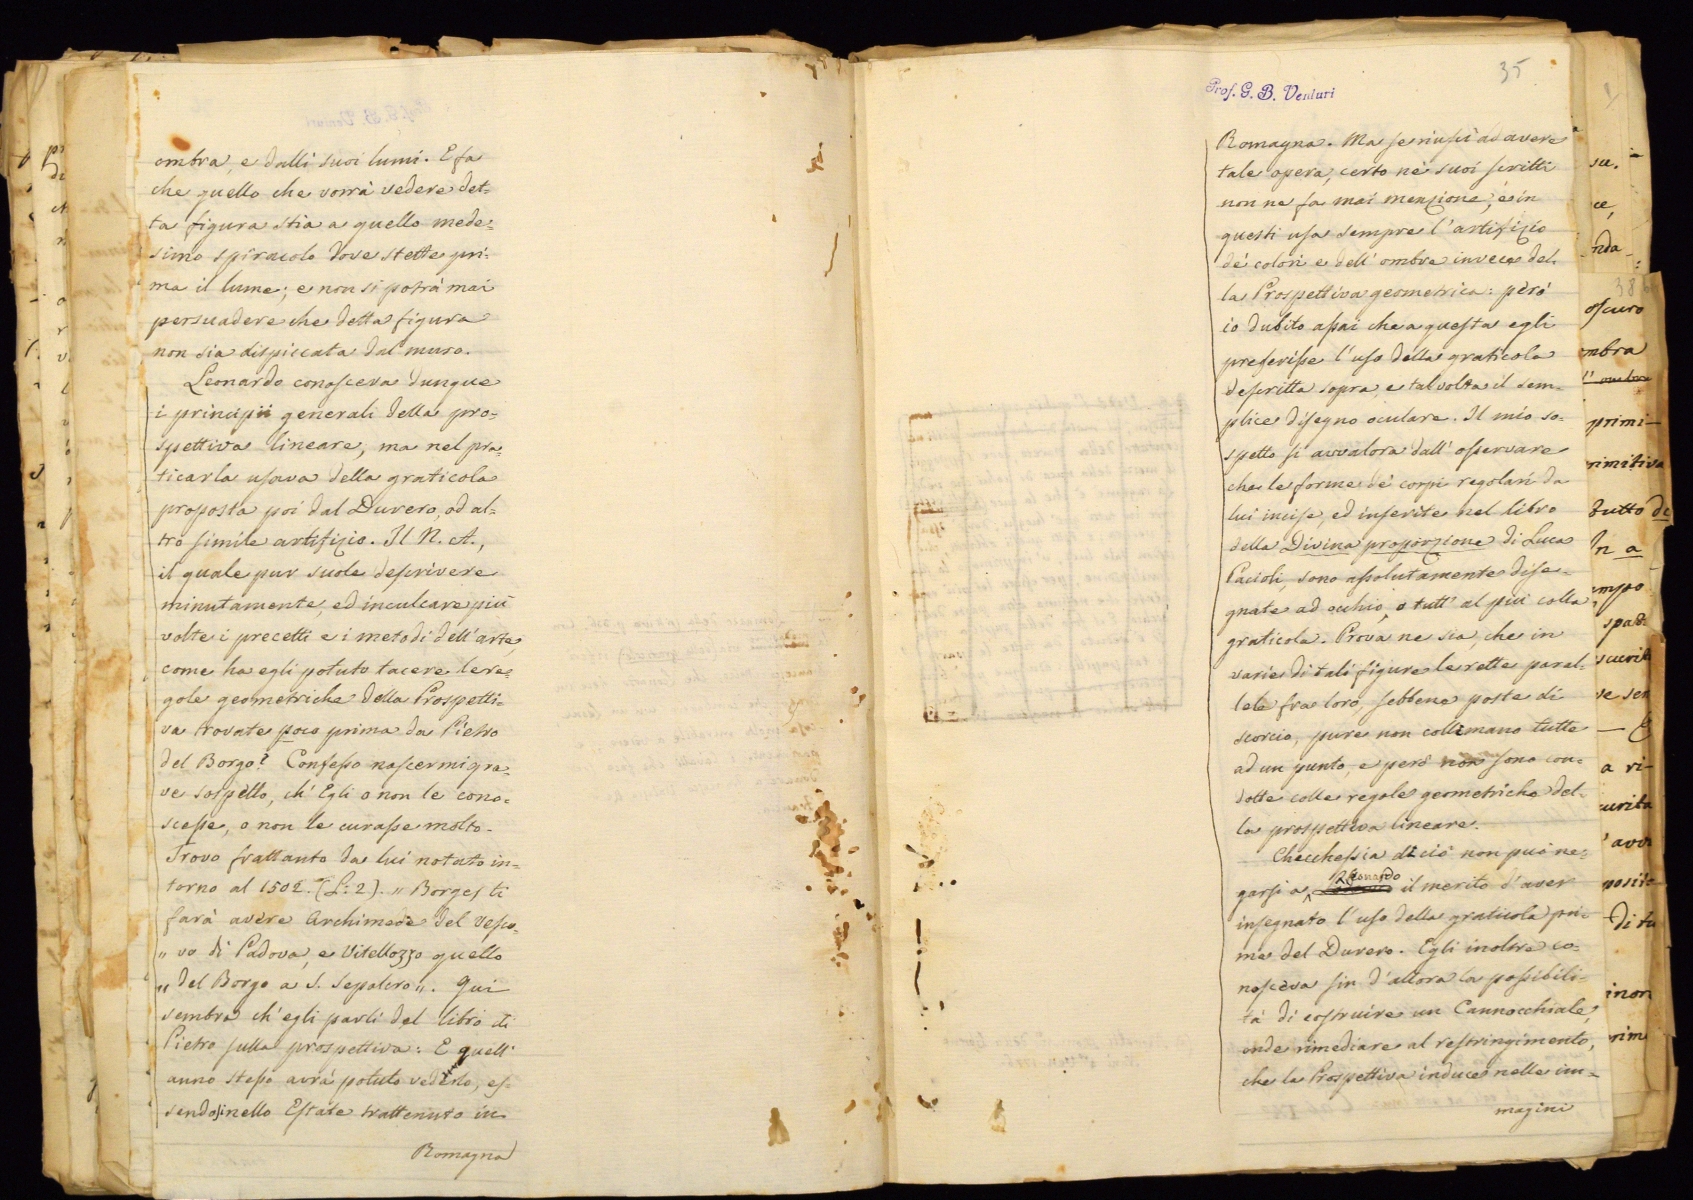 ombra, e dalli suoi lumi. E fa
che quello che vorrà vedere det=
ta figura stia a quello mede=
simo spiracolo dove stette pri-
ma il lume; e non si potrà mai
persuadere che detta figura
non sia dispiccata dal muro.
Leonardo conosceva dunque
i principii generali della pro=
spettiva lineare, ma nel pra=
ticarla usava della graticola
proposta poi dal Durero, od al=
tro simile artifizio. Il N. A.,
il quale pur suole descrivere
minutamente, ed inculcare più
volte i precetti e i metodi dell'arte,
come ha egli potuto tacere le re=
gole geometriche della Prospetti=
va trovate poco prima da Pietro
del Borgo? Confesso nascermi gra=
ve sospetto, ch'Egli o non le cono=
scesse, o non le curasse molto.
Trovo frattanto da lui notato in=
torno al 1502. (L: 2). „ Borges ti
farà avere Archimede del vesco=
„ vo di Padova, e Vitellozzo quello
„ del Borgo a S. Sepolcro„. Qui
sembra ch'egli parli del libro di
Pietro sulla prospettiva: E quell'
anno stesso avrà potuto vederlo, es=
sendosi nello Estate trattenuto in
Romagna
Prof. G. B. Venturi
35
Romagna. Ma se riuscì ad avere
tale opera, certo ne' suoi scritti
non ne fa mai menzione; e in
questi usa sempre l'artifizio
de' colori e dell'ombre invece del=
la Prospettiva geometrica: però
io dubito assai che a questa egli
preferisse l'uso della graticola
descritta sopra, e tal volta il sem=
plice disegno oculare. Il mio so=
spetto si avvalora dall'osservare
che le forme de' corpi regolari da
lui incise, ed inserite nel libro
della Divina proporzione di Luca
Pacioli, sono assolutamente dise=
gnate ad occhio, o tutt'al più colla
graticola. Prova ne sia, che in
varie di tali figure le rette paral=
lele fra loro, sebbene poste di
scorcio, pure non collimano tutte
ad un punto, e però non sono con=
dotte colle regole geometriche del=
la prospettiva lineare.
Checchessia di ciò non può ne=
garsi a Leonardo il merito d'aver
insegnato l'uso della graticola pri=
ma del Durero. Egli inoltre co=
nosceva sin d'allora la possibili=
tà di costruire un Cannocchiale,
onde rimediare al restringimento,
che la Prospettiva induce nelle im=
magini
38
oscuro
mbra
primi-
rimitiva
tutto